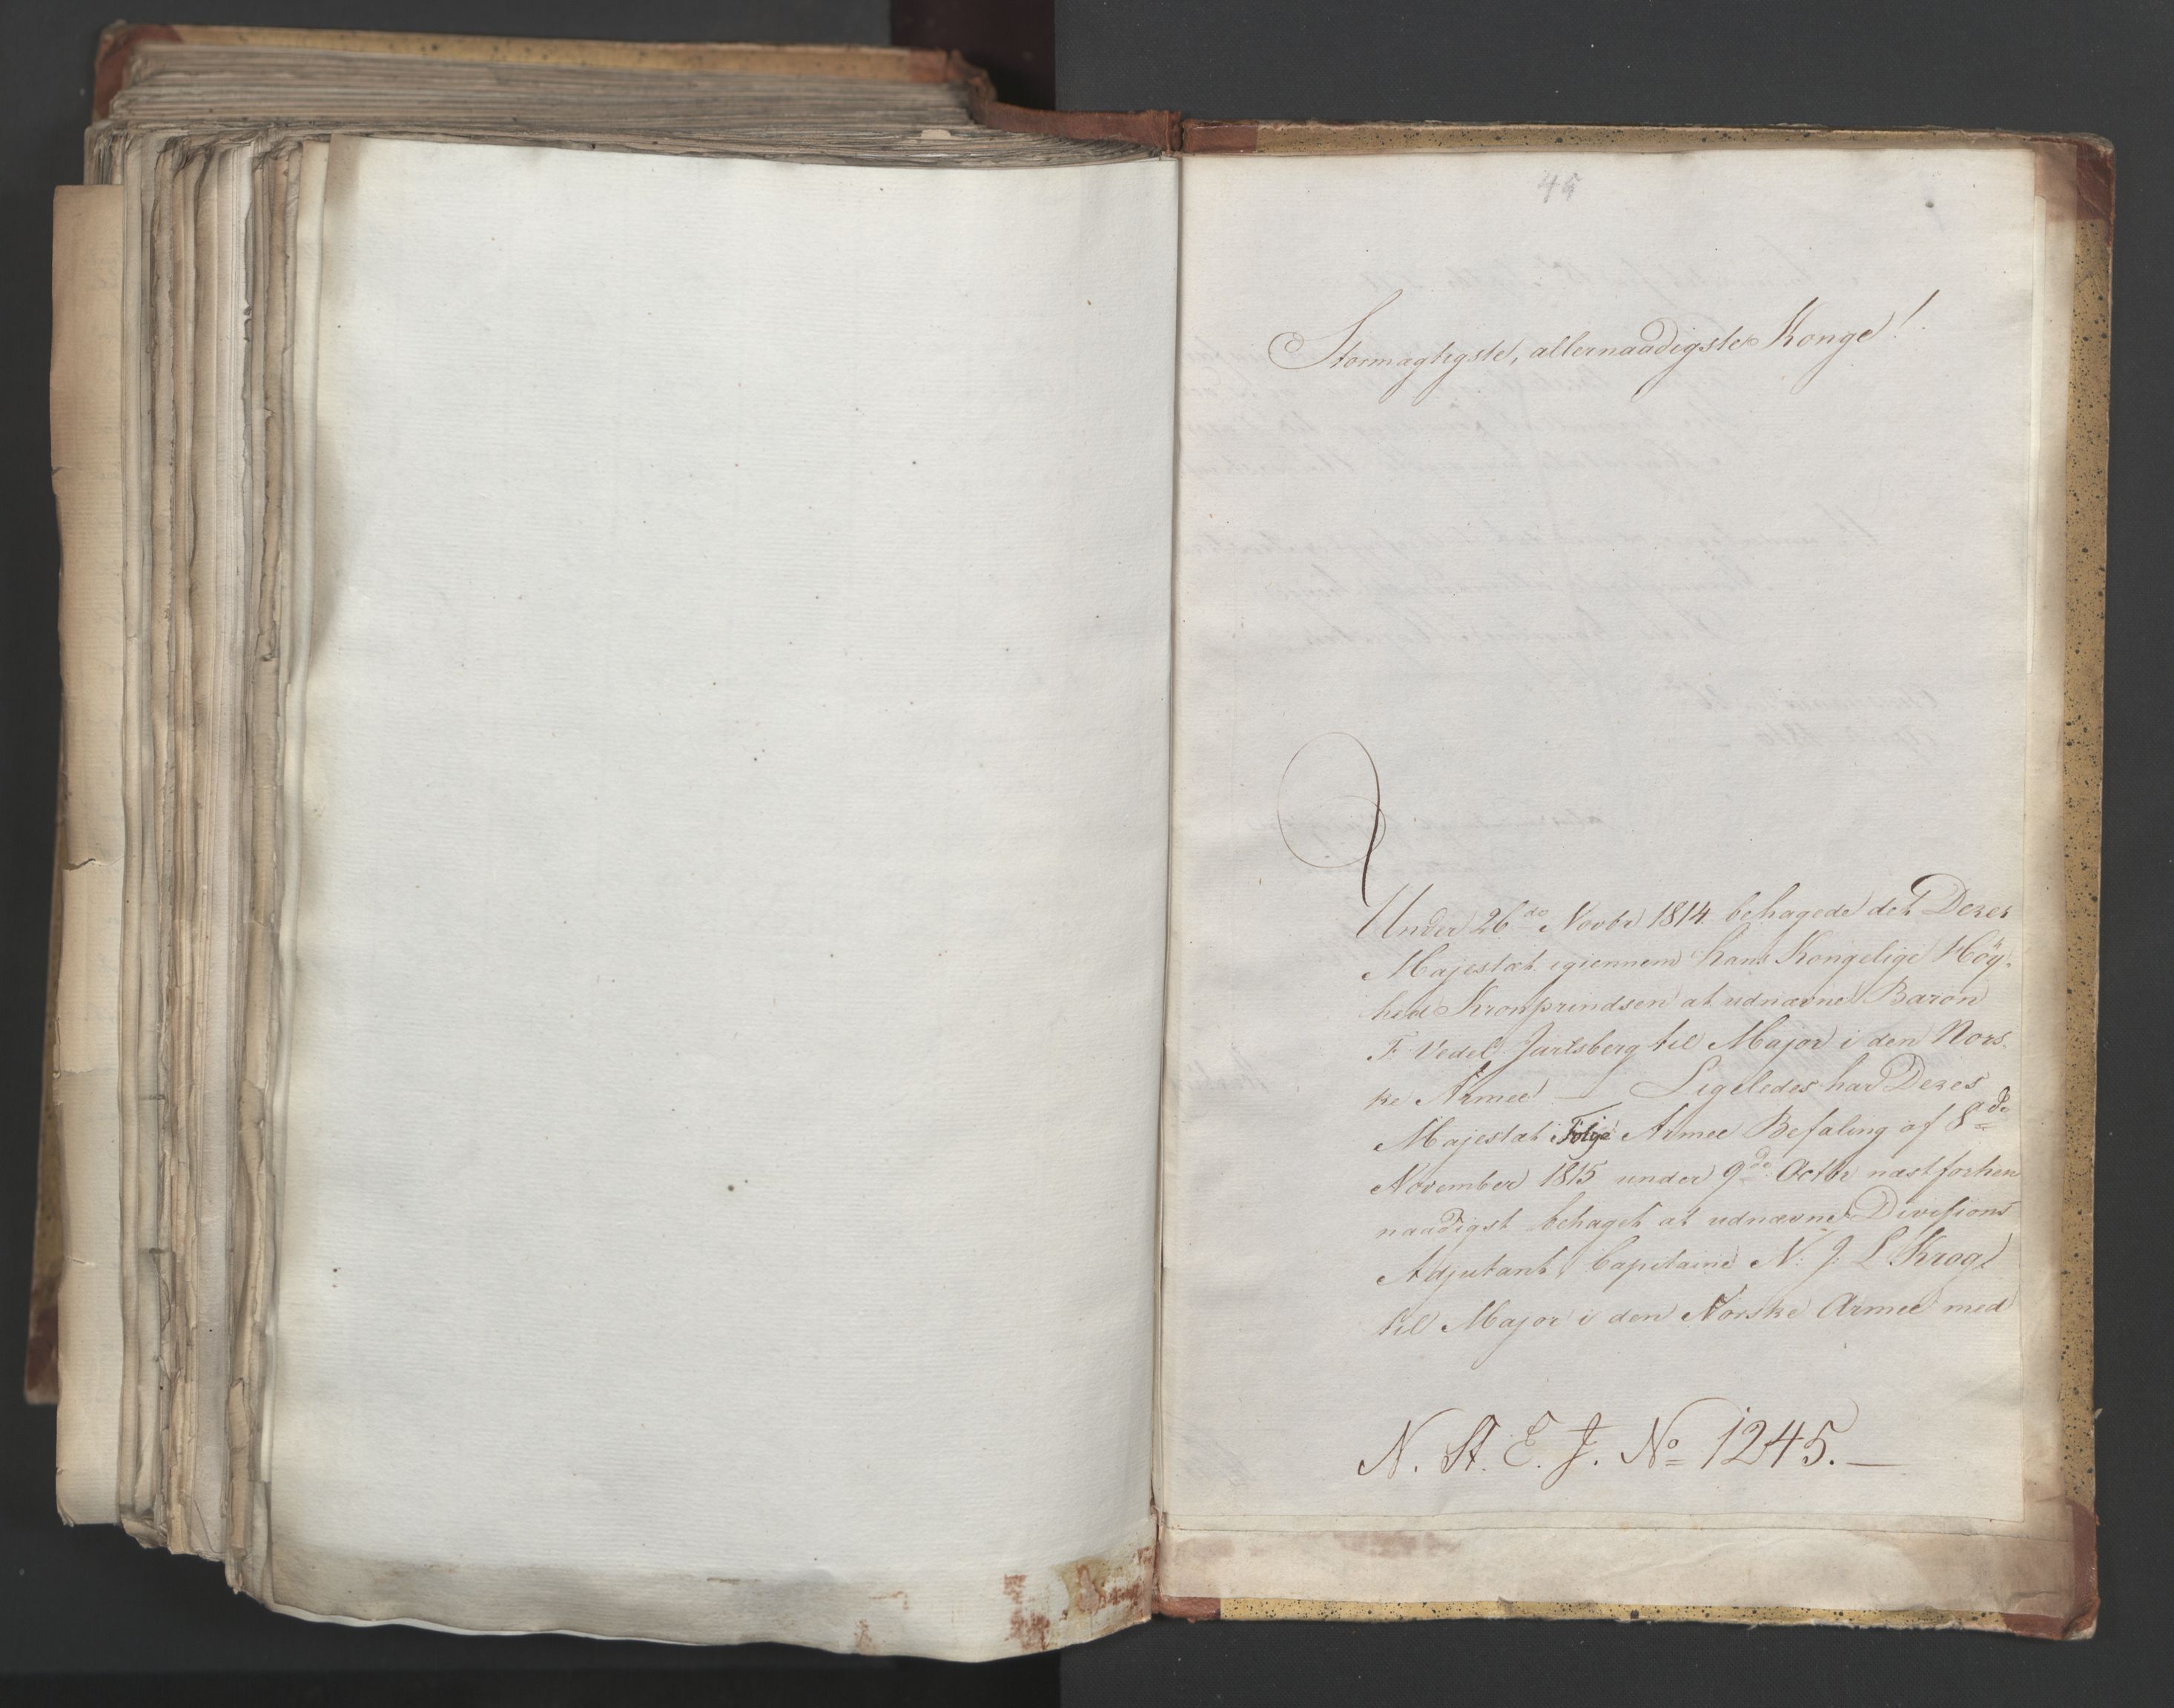 45
Stormægtigste, allernaadigste Konge!
Under 26de Novbr 1814 behagede det Deres
Majestæt igiennem Hans Kongelige Höy-
hed Kronprindsen at udnævne Baron
F. Vedel Jarlsberg til Major i den Nors-
ke Armee — Ligeledes har Deres
Majestæt i Følge Armee Befaling af 8de
November 1815 under 9de Octbr næstforhen
naadigst behaget at udnævne Divisions
Adjutant, Capitaine N. J. L Krogh
til Major i den Norske Armee med
N. St. E. J. No 1245. —